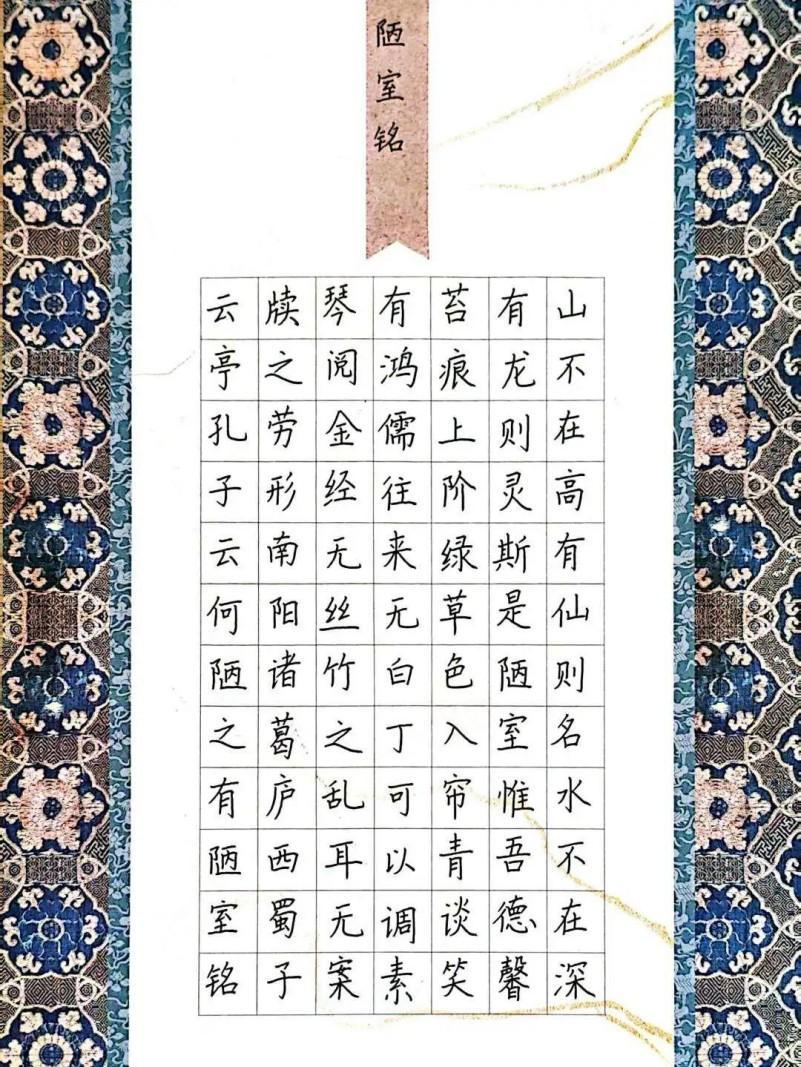 陋室铭
山不在高有仙则名水不在深
有龙则灵斯是陋室惟吾德馨
苔痕上阶绿草色入帘青谈笑
有鸿儒往来无白丁可以调素
琴阅金经无丝竹之乱耳无案
牍之劳形南阳诸葛庐西蜀子
云亭孔子云何陋之有陋室铭